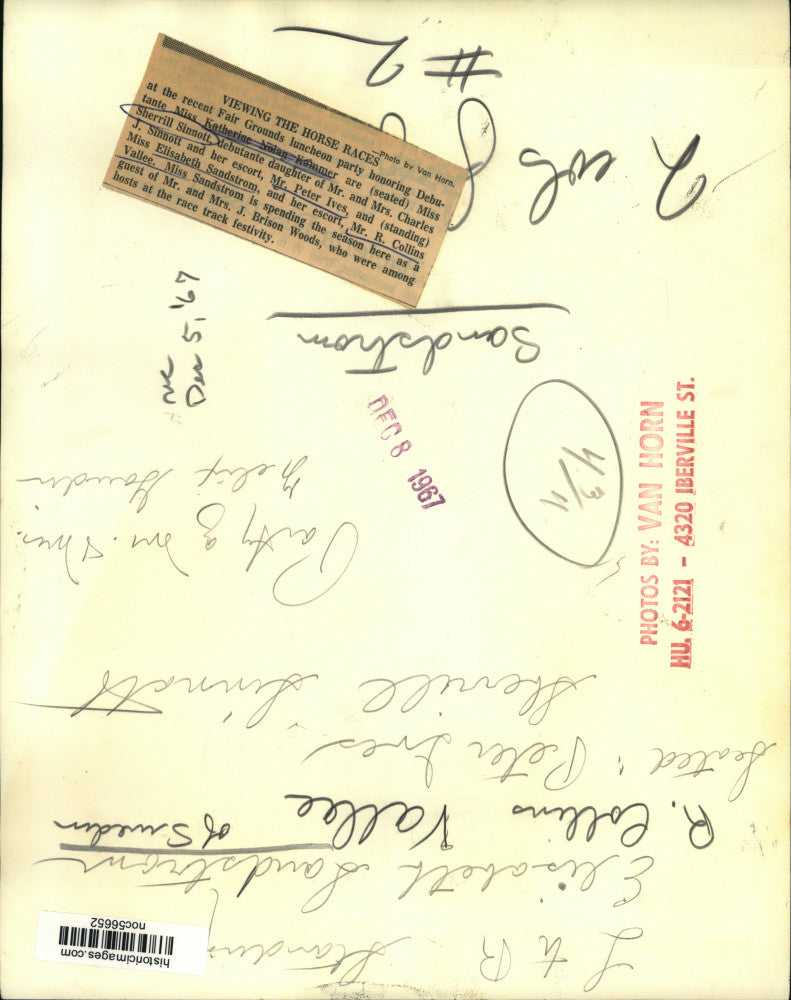 #2
VIEWING THE HORSE RACES
—Photo by Van Horn.
at the recent Fair Grounds luncheon party honoring Debu-
tante Miss Katherine Nolan Kammer are (seated) Miss
Sherrill Sinnott, debutante daughter of Mr. and Mrs. Charles
J. Sinnott and her escort, Mr. Peter Ives, and (standing)
Miss Elisabeth Sandstrom, and her escort, Mr. R. Collins
Vallee. Miss Sandstrom is spending the season here as a
guest of Mr. and Mrs. J. Brison Woods, who were among
hosts at the race track festivity.
Sandstrom
Dec 5, '67
DEC 8 1967
4 3/4
PHOTOS BY: VAN HORN
HU. 6-2121 — 4320 IBERVILLE ST.
L to R Standing
Elisabeth Sandstrom
of Sweden
R. Collins Vallee
Seated: Peter Ives
Sherrill Sinnott
Party of Mr. & Mrs.
Felix Gaudin
historicimages.com
noc56652